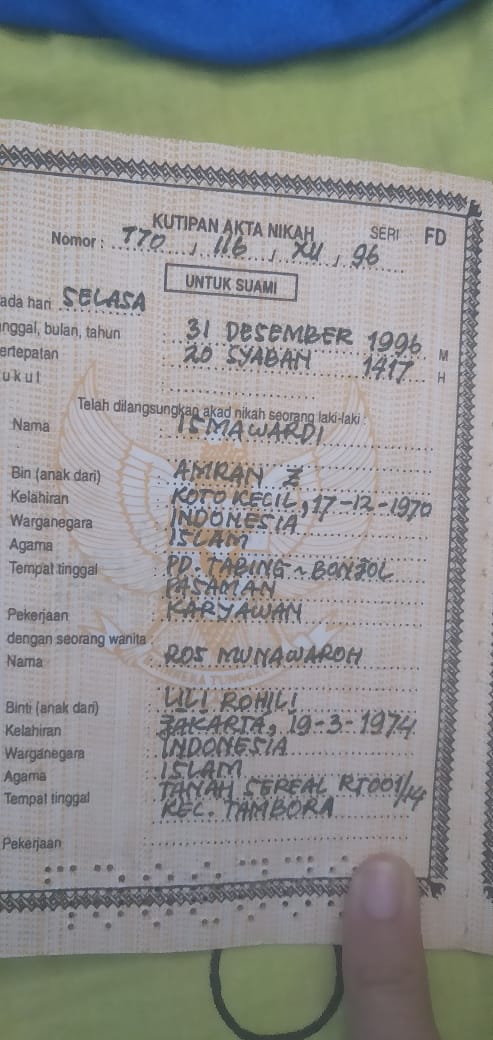 KUTIPAN AKTA NIKAH SERI FD
Nomor : 770 , 116 , XII , 96
UNTUK SUAMI
ada hari SELASA
nggal, bulan, tahun 31 DESEMBER 1996 M
ertepatan 20 SYABAN 1417 H
ukul
Telah dilangsungkan akad nikah seorang laki-laki :
Nama : ISMAWARDI
Bin (anak dari) : AMRAN Z
Kelahiran : KOTO KECIL, 17-12-1970
Warganegara : INDONESIA
Agama : ISLAM
Tempat tinggal : PD. TABING ~ BONJOL
PASAMAN
Pekerjaan : KARYAWAN
dengan seorang wanita :
Nama : ROS MUNAWAROH
Binti (anak dari) : LILI ROHILI
Kelahiran : JAKARTA, 19-3-1974
Warganegara : INDONESIA
Agama : ISLAM
Tempat tinggal : TANAH SEREAL RT001/14
KEC. TAMBORA
Pekerjaan :